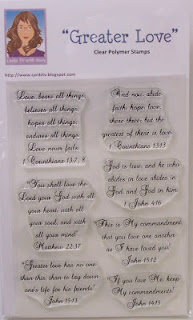 "Greater Love"
Clear Polymer Stamps
Love bears all things,
believes all things,
hopes all things,
endures all things.
Love never fails.
1 Corinthians 13:7, 8
And now abide
faith, hope, love,
these three; but the
greatest of these is
love.
1 Corinthians 13:13
"You shall love the
Lord your God with all
your heart, with all
your soul, and with
all your mind."
Matthew 22:37
God is love, and he who
abides in love abides in
God, and God in him.
1 John 4:16
This is My commandment,
that you love one another
as I have loved you!
John 15:12
"Greater love has no one
than this, than to lay down
one's life for his friends"
John 15:13
"If you love Me, keep
My commandments!"
John 14:15